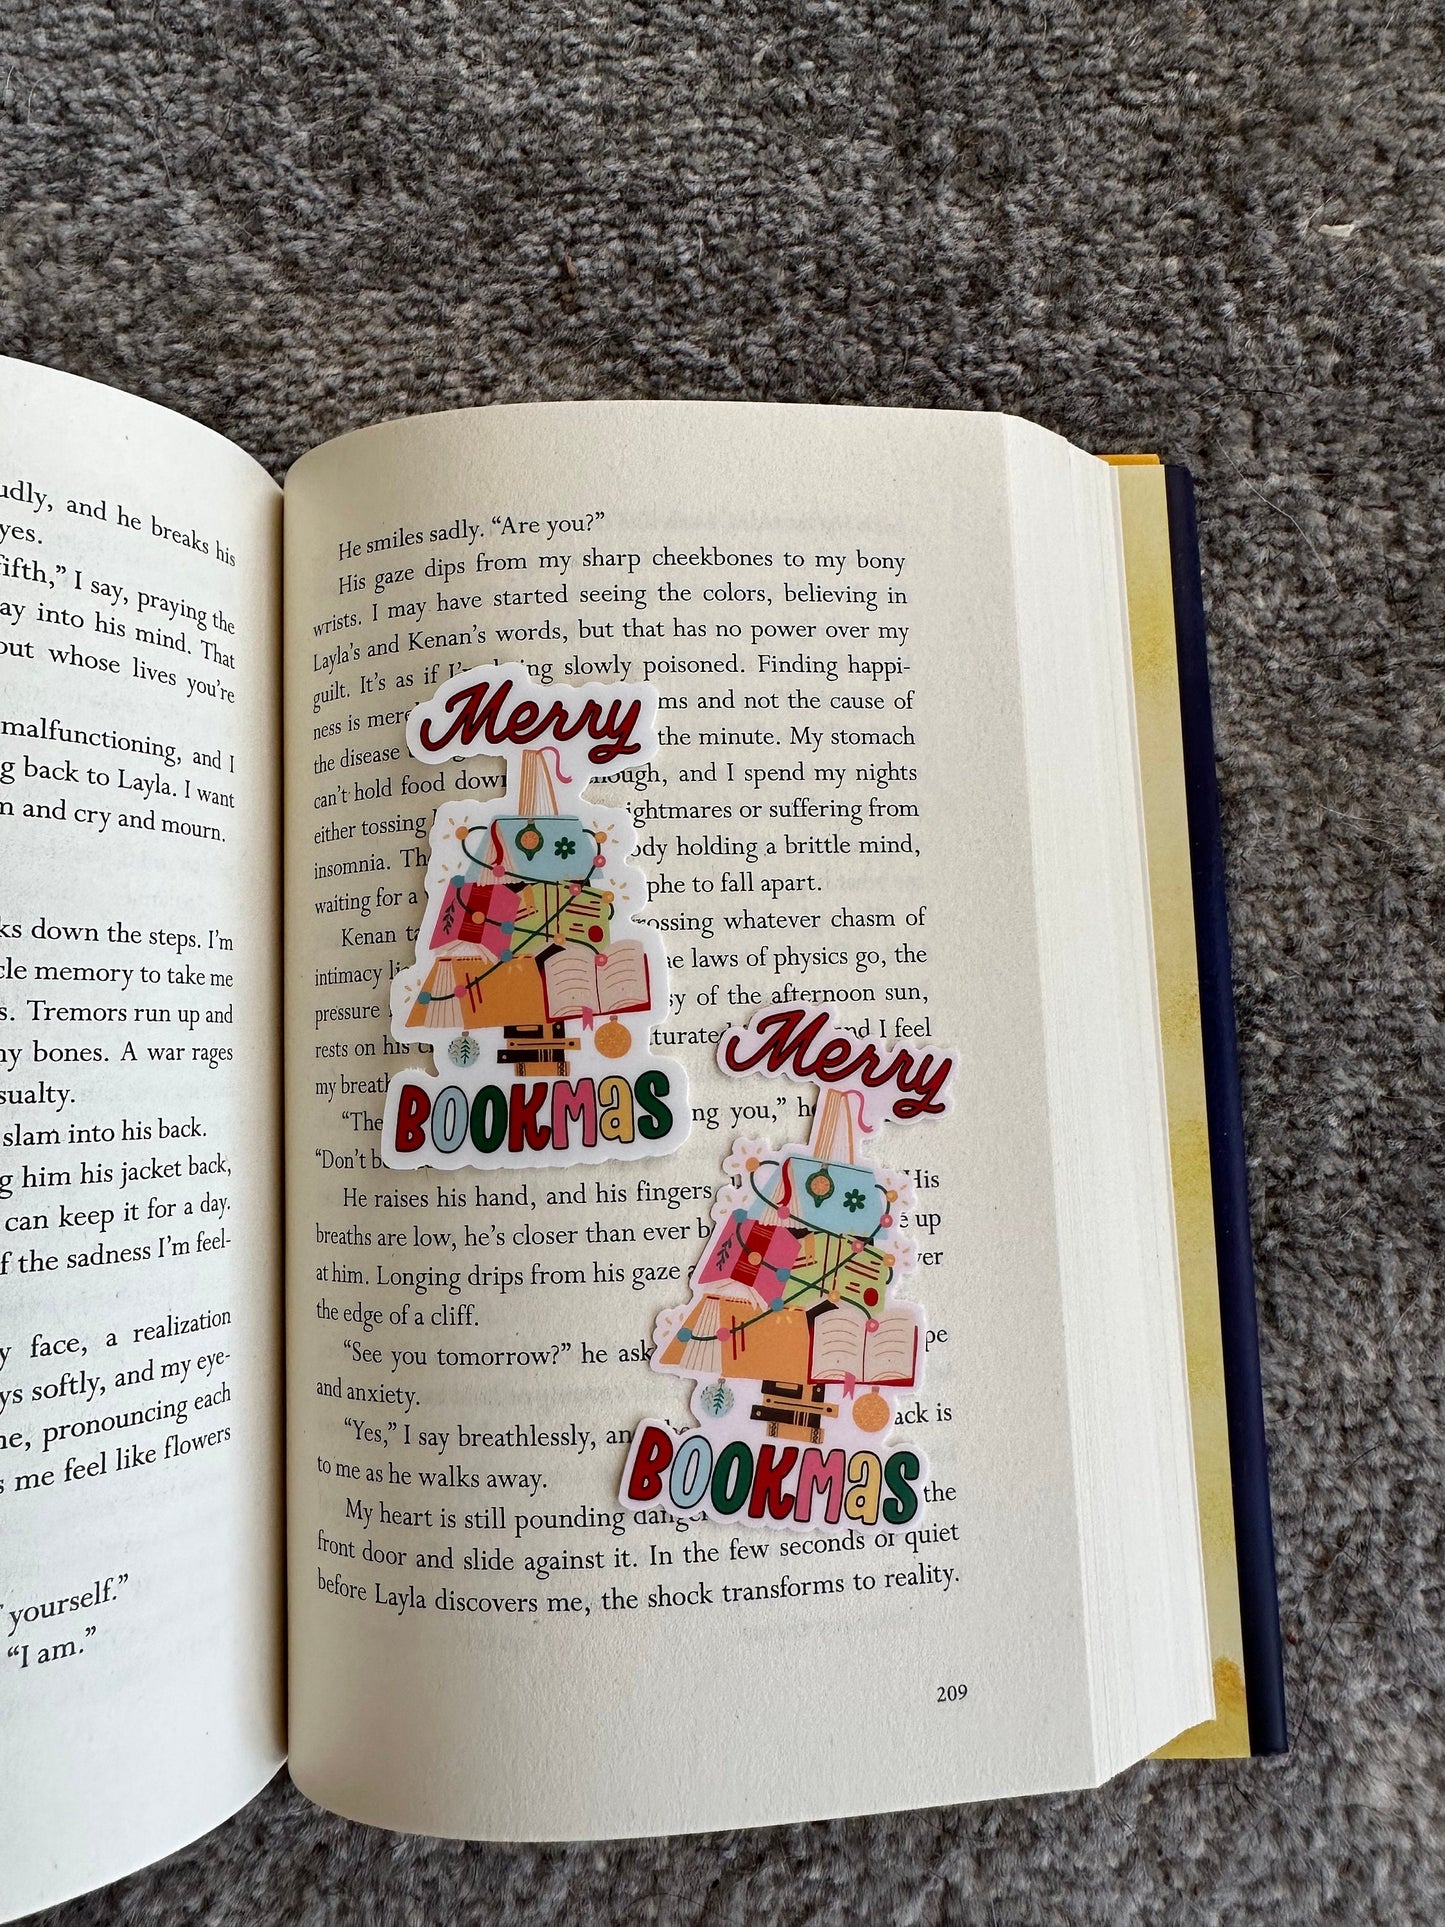 udly, and he breaks his
yes.
fifth,” I say, praying the
ay into his mind. That
out whose lives you’re
malfunctioning, and I
g back to Layla. I want
m and cry and mourn.
ks down the steps. I’m
cle memory to take me
s. Tremors run up and
my bones. A war rages
sualty.
slam into his back.
g him his jacket back,
can keep it for a day.
f the sadness I’m feel-
y face, a realization
ys softly, and my eye-
ne, pronouncing each
s me feel like flowers
yourself.”
“I am.”
He smiles sadly. “Are you?”
His gaze dips from my sharp cheekbones to my bony
wrists. I may have started seeing the colors, believing in
Layla’s and Kenan’s words, but that has no power over my
guilt. It’s as if I’m being slowly poisoned. Finding happi-
ness is mere ms and not the cause of
the disease the minute. My stomach
can’t hold food down though, and I spend my nights
either tossing ightmares or suffering from
insomnia. Th ody holding a brittle mind,
waiting for a phe to fall apart.
Kenan ta rossing whatever chasm of
intimacy li he laws of physics go, the
pressure sy of the afternoon sun,
rests on his c turated and I feel
my breath
“The ng you,” he
“Don’t b
He raises his hand, and his fingers His
breaths are low, he’s closer than ever b e up
at him. Longing drips from his gaze a ver
the edge of a cliff.
“See you tomorrow?” he ask pe
and anxiety.
“Yes,” I say breathlessly, an ack is
to me as he walks away.
My heart is still pounding danger the
front door and slide against it. In the few seconds of quiet
before Layla discovers me, the shock transforms to reality.
209
Merry
BOOKMAS
Merry
BOOKMAS